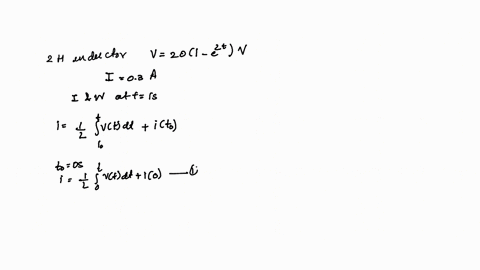 2 H inductor V = 20 (1 - e^{2t}) V
I = 0.3 A
I & W at t = 1s
i = 1/2 ∫_{t0}^{t} V(t) dt + i(t0)
t0 = 0s
i = 1/2 ∫_{0}^{t} V(t) dt + i(0) —①